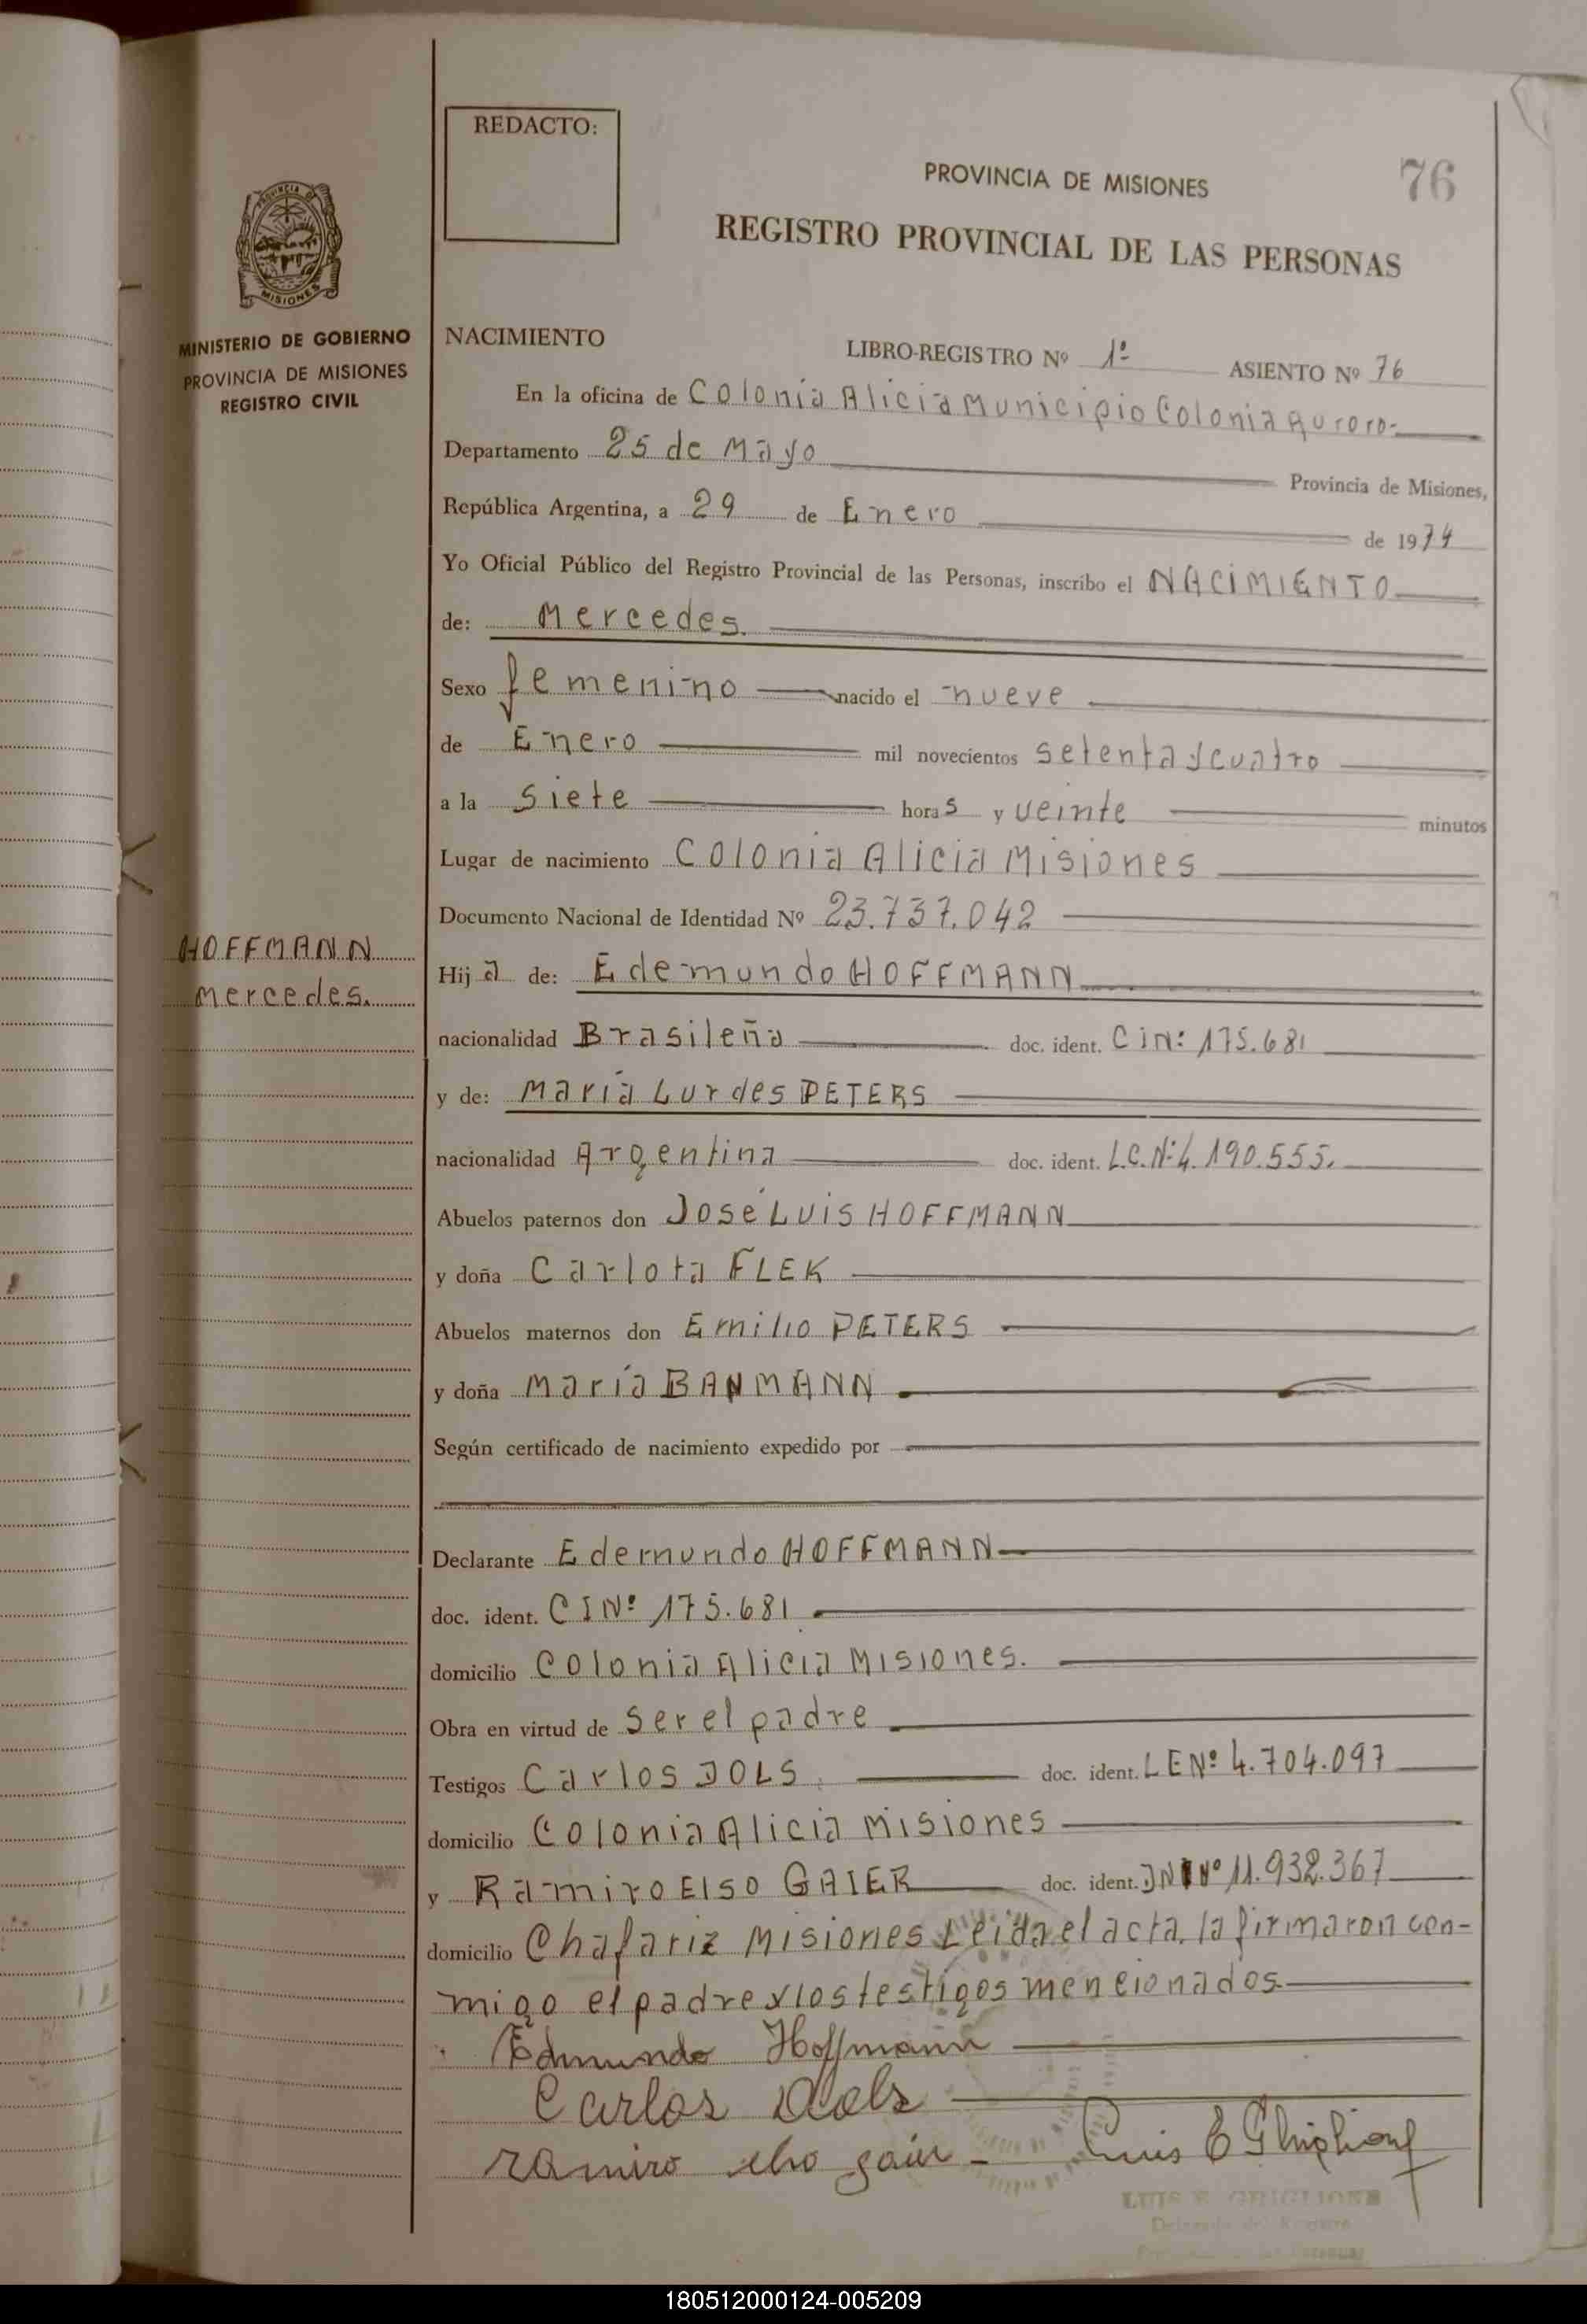 REDACTO:
PROVINCIA DE MISIONES
76
REGISTRO PROVINCIAL DE LAS PERSONAS
PROVINCIA DE
MISIONES
MINISTERIO DE GOBIERNO
PROVINCIA DE MISIONES
REGISTRO CIVIL
NACIMIENTO
LIBRO-REGISTRO Nº 1º ASIENTO Nº 76
En la oficina de Colonia Alicia Municipio Colonia Aurora-
Departamento 25 de Mayo Provincia de Misiones,
República Argentina, a 29 de Enero de 1974
Yo Oficial Público del Registro Provincial de las Personas, inscribo el NACIMIENTO
de: Mercedes.
Sexo femenino nacido el nueve
de Enero mil novecientos setenta y cuatro
a la siete horas y veinte minutos
Lugar de nacimiento Colonia Alicia Misiones
Documento Nacional de Identidad Nº 23.737.042
HOFFMANN
Mercedes.
Hija de: Edemundo HOFFMANN
nacionalidad Brasileña doc. ident. CIN: 175.681
y de: María Lurdes PETERS
nacionalidad Argentina doc. ident. L.C.Nº 4.190.555.
Abuelos paternos don José Luis HOFFMANN
y doña Carlota FLEK
Abuelos maternos don Emilio PETERS
y doña María BANMANN
Según certificado de nacimiento expedido por
Declarante Edemundo HOFFMANN
doc. ident. CINº 175.681
domicilio Colonia Alicia Misiones.
Obra en virtud de ser el padre
Testigos Carlos DOLS doc. ident. LENº 4.704.097
domicilio Colonia Alicia Misiones
y Ramiro Elso GAIER doc. ident. DNI Nº 11.932.367
domicilio Chafariz Misiones Leida el acta, la firmaron con-
migo el padre y los testigos mencionados
Edmundo Hoffmann
Carlos Dols
ramiro elso gaier - Luis E Ghiglione
LUIS E. GHIGLIONE
180512000124-005209